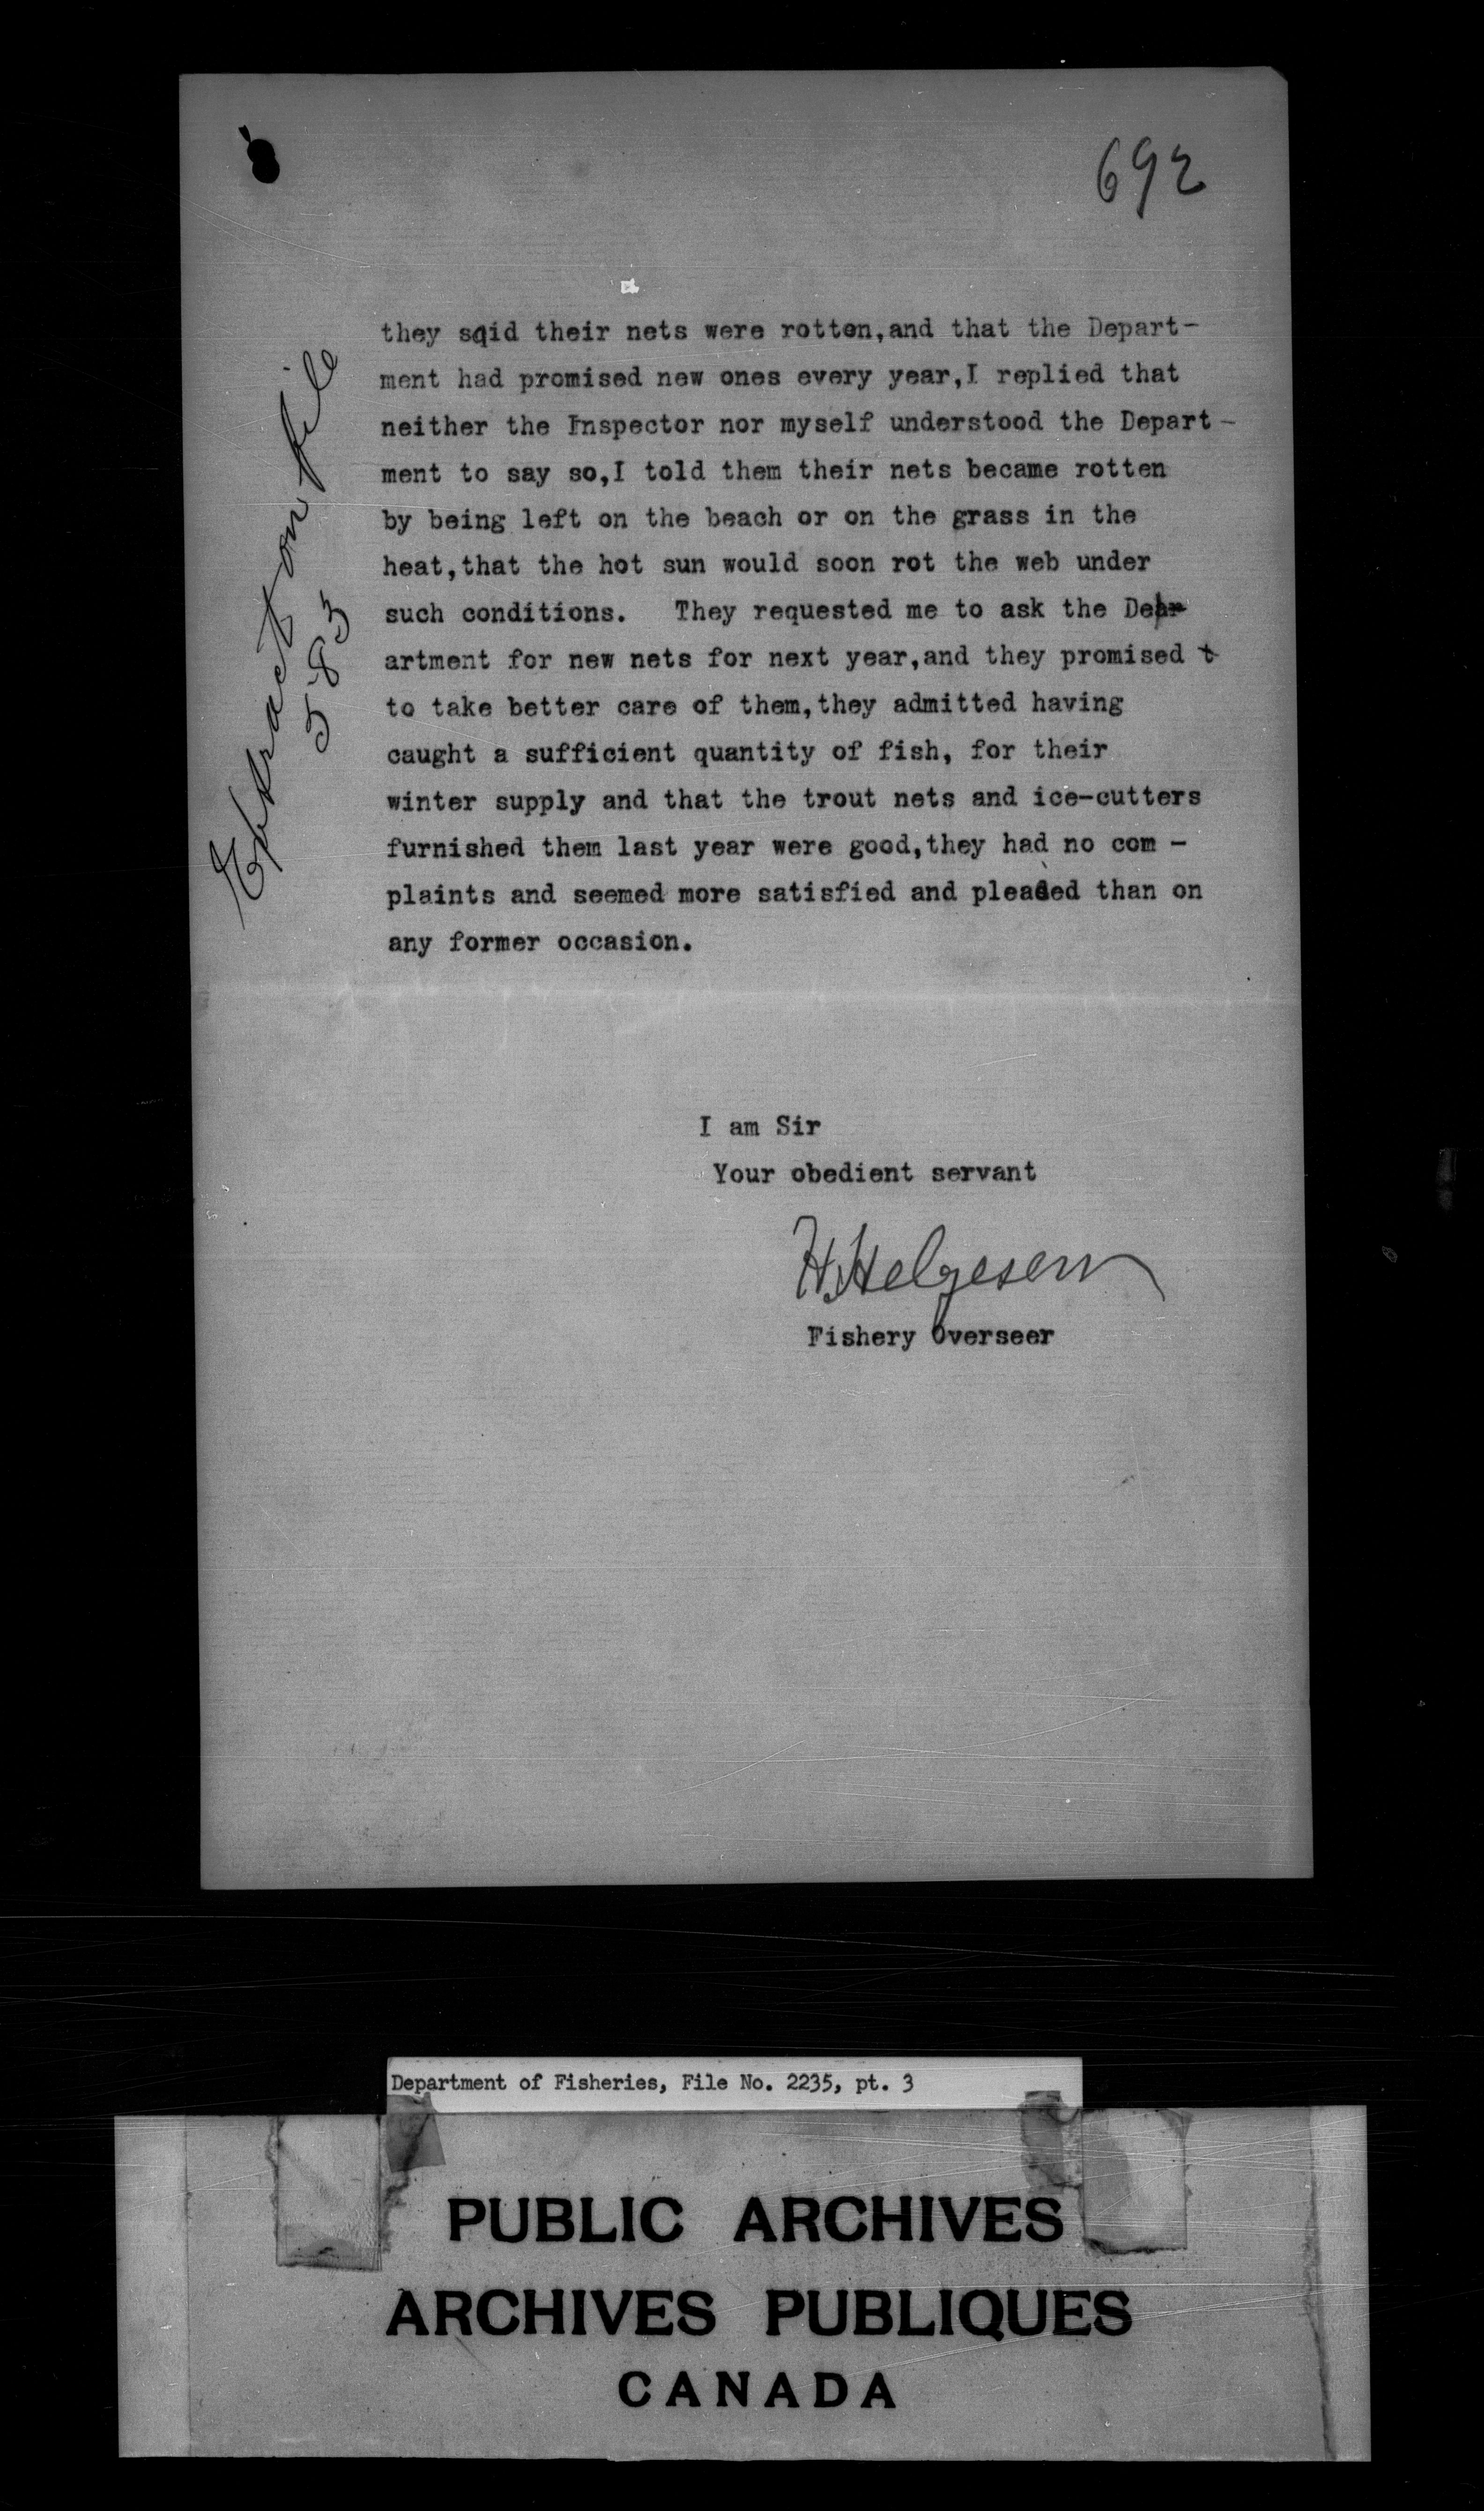 692
Extract on file
583
they sqid their nets were rotten,and that the Depart-
ment had promised new ones every year,I replied that
neither the Inspector nor myself understood the Depart-
ment to say so,I told them their nets became rotten
by being left on the beach or on the grass in the
heat,that the hot sun would soon rot the web under
such conditions. They requested me to ask the Dep
artment for new nets for next year,and they promised t
to take better care of them,they admitted having
caught a sufficient quantity of fish, for their
winter supply and that the trout nets and ice-cutters
furnished them last year were good,they had no com -
plaints and seemed more satisfied and pleased than on
any former occasion.
I am Sir
Your obedient servant
H. Helgesen
Fishery Overseer
Department of Fisheries, File No. 2235, pt. 3
PUBLIC ARCHIVES
ARCHIVES PUBLIQUES
CANADA